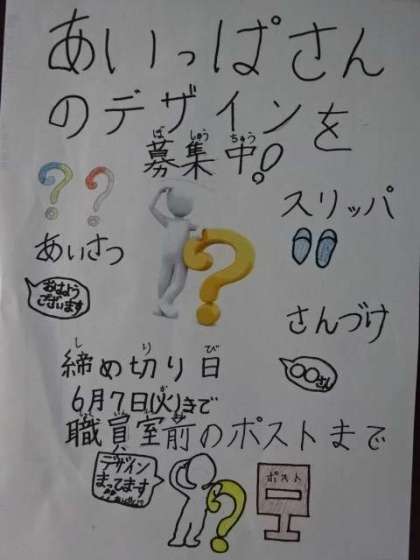 あいっぱさん
のデザインを
募集中!
ぼ しゅう ちゅう
スリッパ
あいさつ
おはよう
ございます
さんづけ
〇〇さん
し き び
締め切り日
6月7日(火)まで
職員室前のポストまで
デザイン
まってます
ポスト